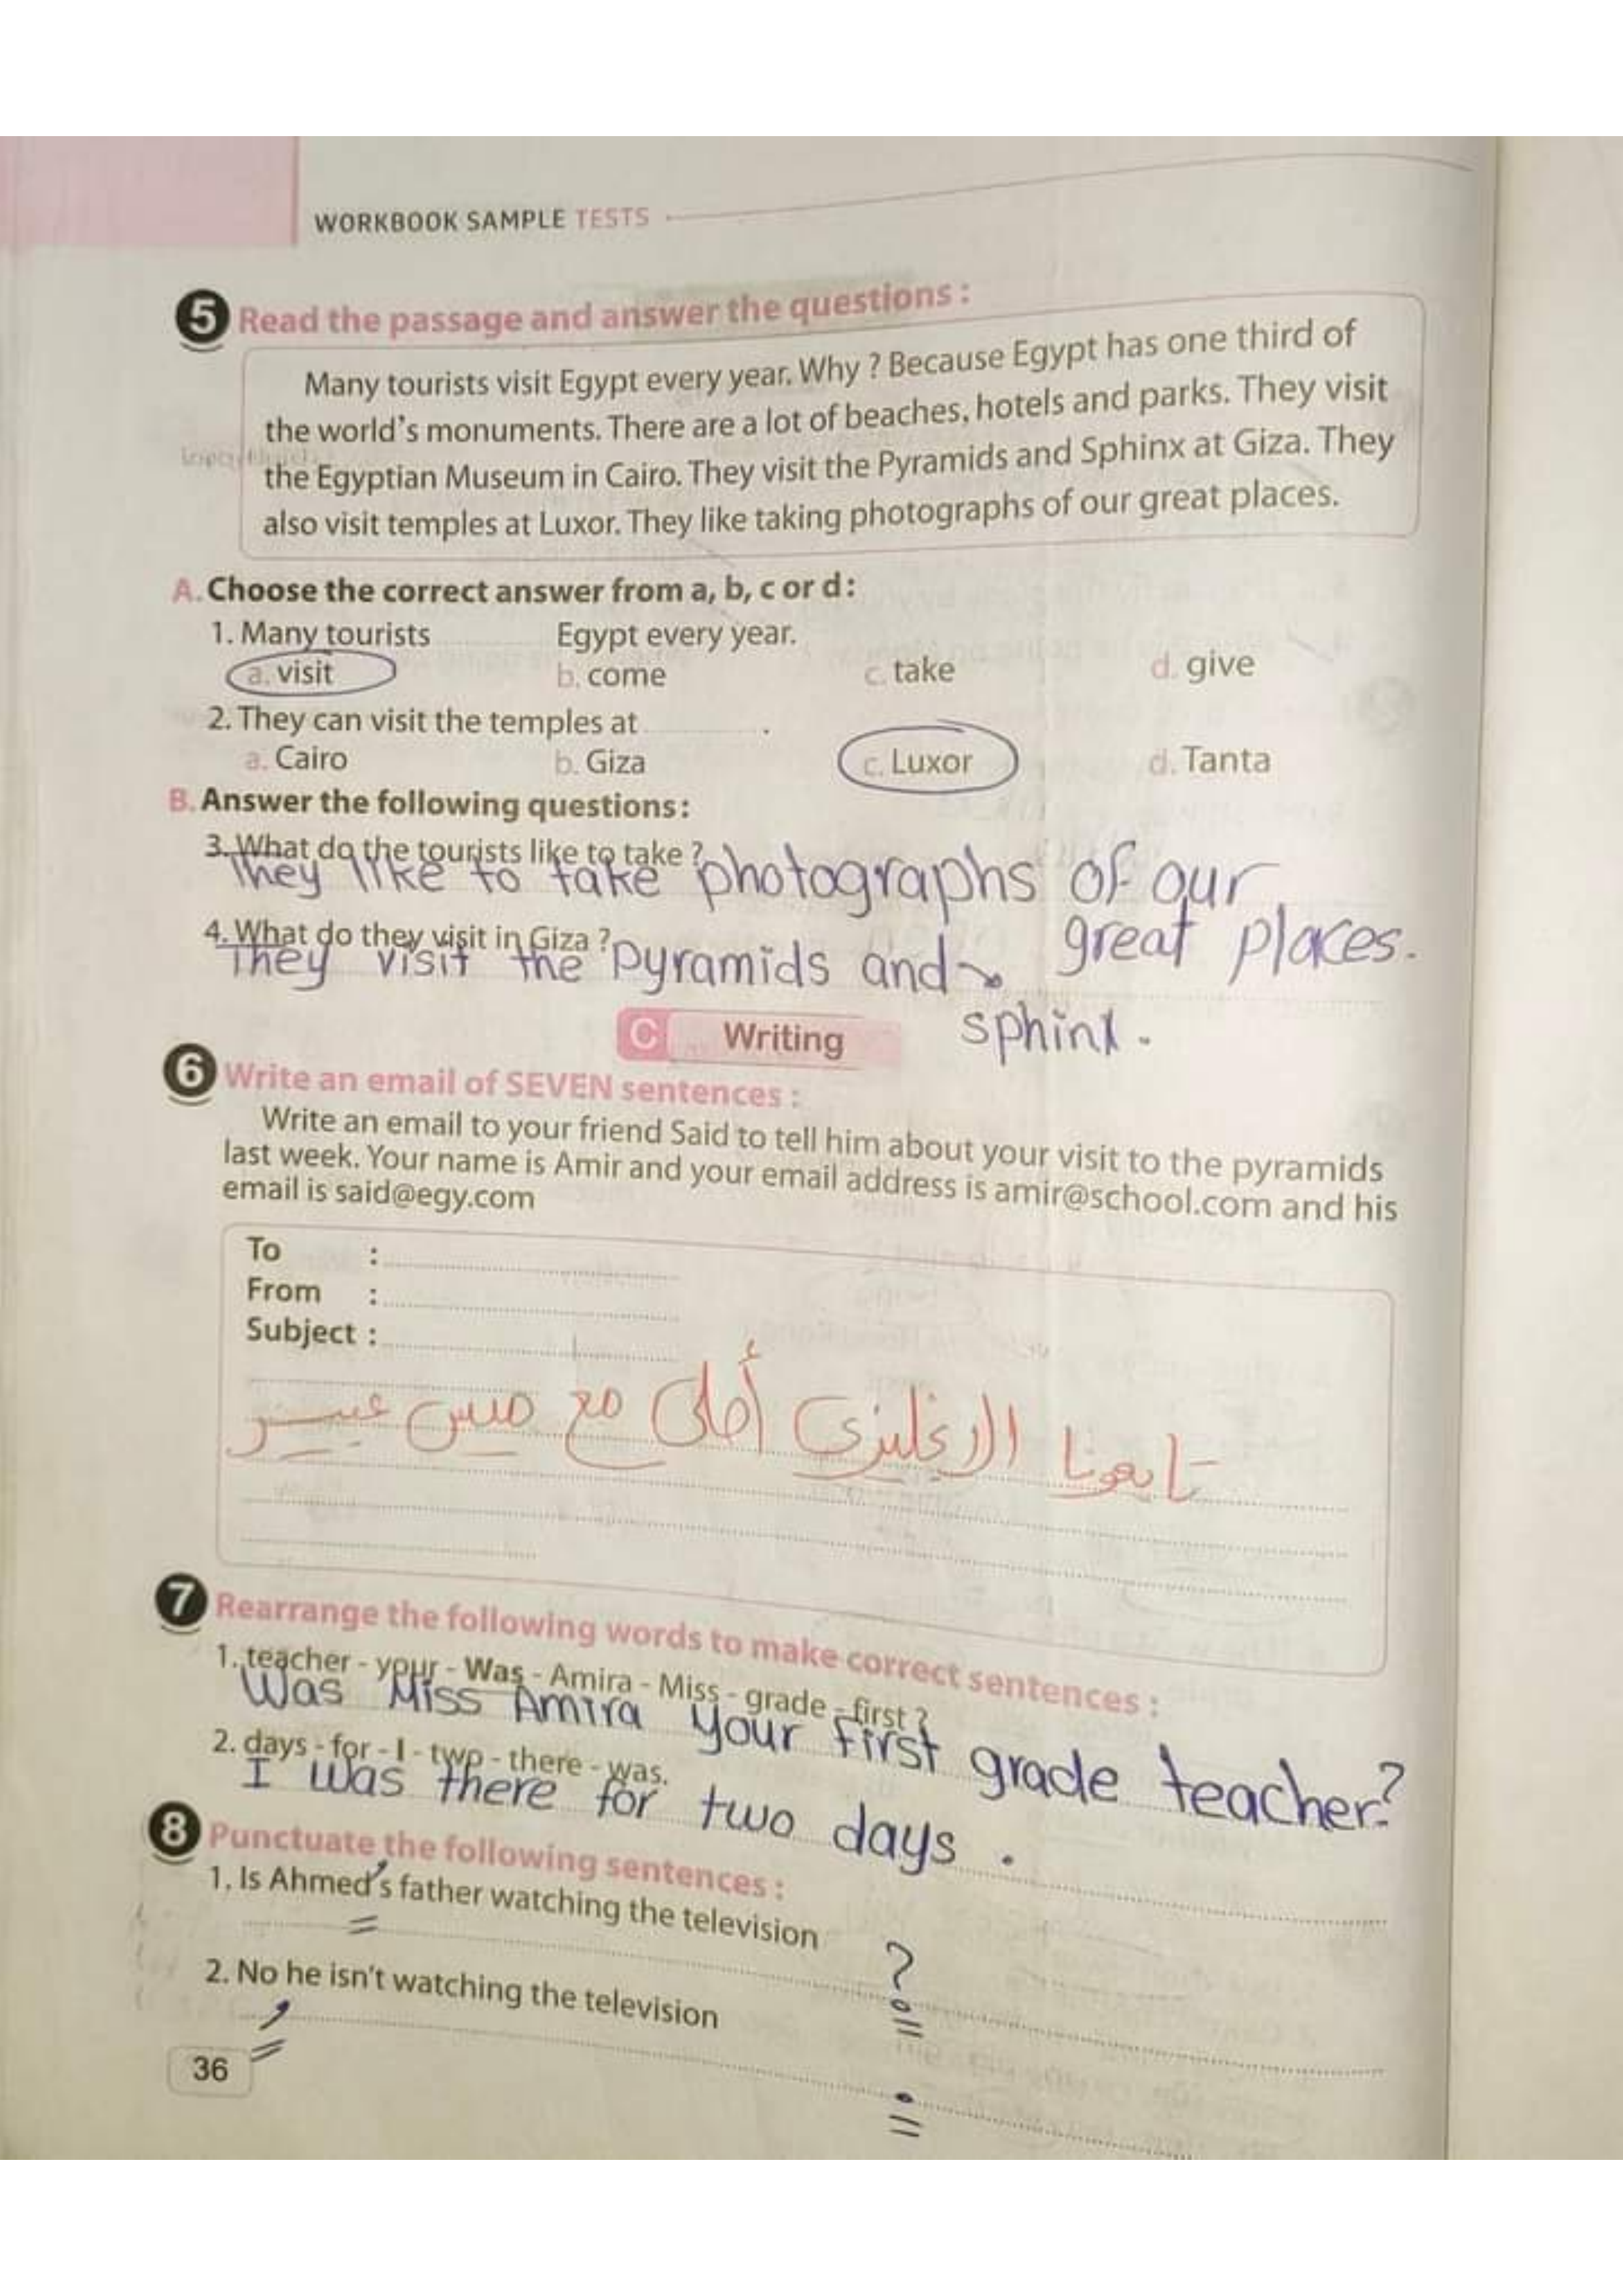 WORKBOOK SAMPLE TESTS
5 Read the passage and answer the questions :
Many tourists visit Egypt every year. Why ? Because Egypt has one third of
the world's monuments. There are a lot of beaches, hotels and parks. They visit
the Egyptian Museum in Cairo. They visit the Pyramids and Sphinx at Giza. They
also visit temples at Luxor. They like taking photographs of our great places.
A. Choose the correct answer from a, b, c or d :
1. Many tourists Egypt every year.
a. visit b. come c. take d. give
2. They can visit the temples at .
a. Cairo b. Giza c. Luxor d. Tanta
B. Answer the following questions :
3. What do the tourists like to take ?
They like to take photographs of our
great places.
4. What do they visit in Giza ?
They visit the pyramids and
sphinx.
C Writing
6 Write an email of SEVEN sentences :
Write an email to your friend Said to tell him about your visit to the pyramids
last week. Your name is Amir and your email address is amir@school.com and his
email is said@egy.com
To :
From :
Subject :
تابعونا الإنجليزي أحلى مع ميس عبير
7 Rearrange the following words to make correct sentences :
1. teacher - your - Was - Amira - Miss - grade - first ?
Was Miss Amira your first grade teacher?
2. days - for - I - two - there - was.
I was there for two days .
8 Punctuate the following sentences :
1. Is Ahmed's father watching the television
?
2. No he isn't watching the television
,
.
36